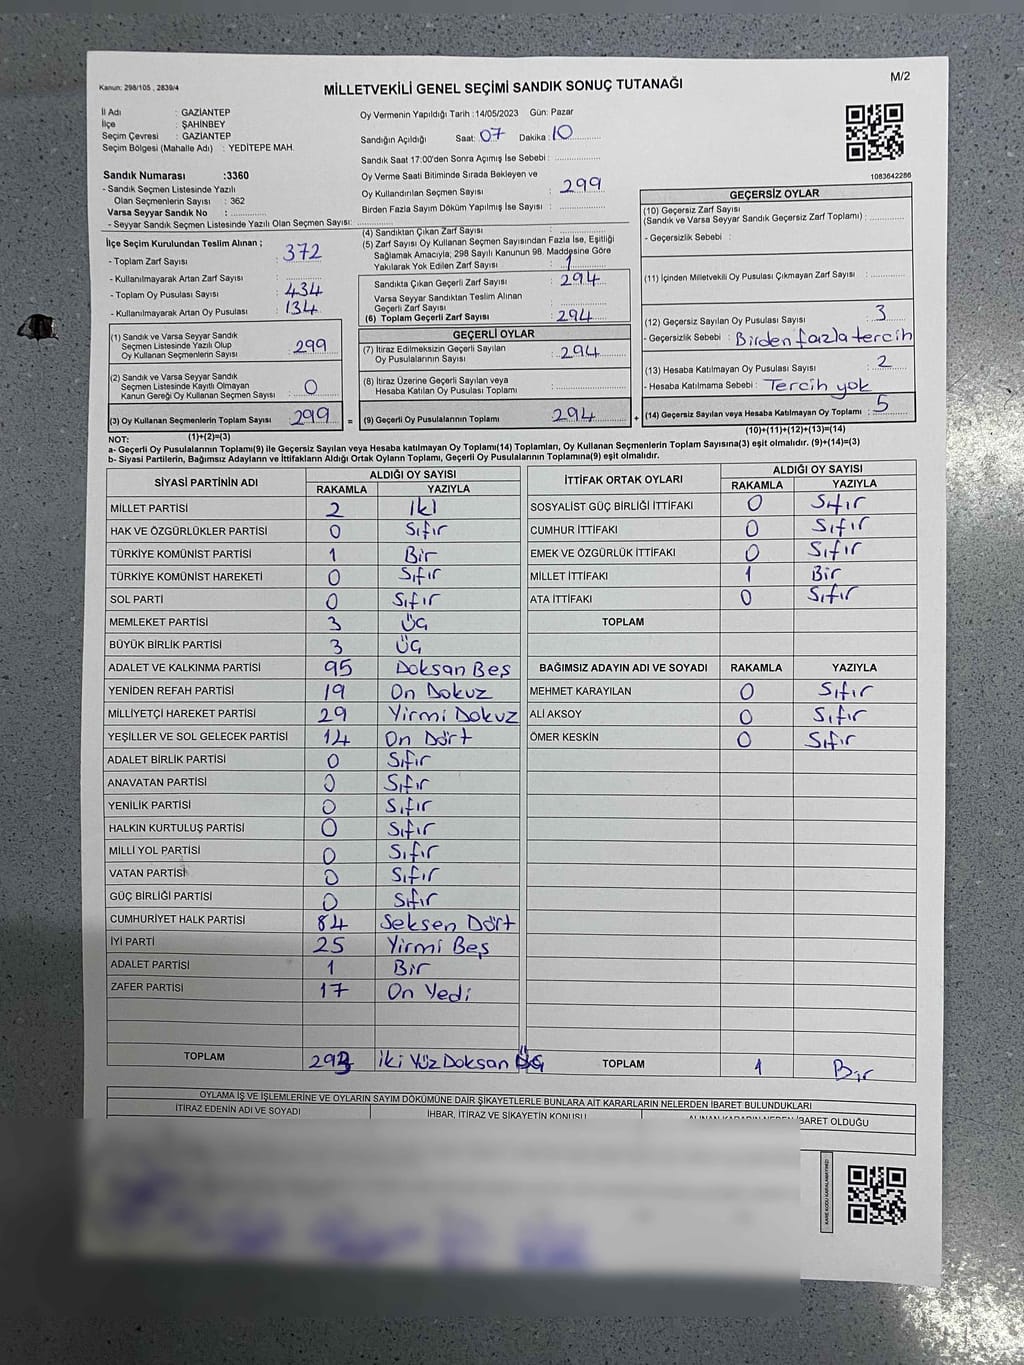 Kanun: 298/105 , 2839/4
MİLLETVEKİLİ GENEL SEÇİMİ SANDIK SONUÇ TUTANAĞI
M/2
İl Adı : GAZİANTEP
İlçe : ŞAHİNBEY
Seçim Çevresi : GAZİANTEP
Seçim Bölgesi (Mahalle Adı) : YEDİTEPE MAH.
Sandık Numarası :3360
- Sandık Seçmen Listesinde Yazılı
Olan Seçmenlerin Sayısı : 362
Varsa Seyyar Sandık No :
- Seyyar Sandık Seçmen Listesinde Yazılı Olan Seçmen Sayısı:
Oy Vermenin Yapıldığı Tarih :14/05/2023 Gün: Pazar
Sandığın Açıldığı Saat: 07 Dakika: 10
Sandık Saat 17:00'den Sonra Açımış İse Sebebi :
Oy Verme Saati Bitiminde Sırada Bekleyen ve
Oy Kullandırılan Seçmen Sayısı : 299
Birden Fazla Sayım Döküm Yapılmış İse Sayısı :
1083642286
İlçe Seçim Kurulundan Teslim Alınan ;
- Toplam Zarf Sayısı : 372
- Kullanılmayarak Artan Zarf Sayısı :
- Toplam Oy Pusulası Sayısı : 434
- Kullanılmayarak Artan Oy Pusulası : 134
(1) Sandık ve Varsa Seyyar Sandık
Seçmen Listesinde Yazılı Olup
Oy Kullanan Seçmenlerin Sayısı : 299
(2) Sandık ve Varsa Seyyar Sandık
Seçmen Listesinde Kayıtlı Olmayan
Kanun Gereği Oy Kullanan Seçmen Sayısı : 0
(3) Oy Kullanan Seçmenlerin Toplam Sayısı : 299
(1)+(2)=(3)
(4) Sandıktan Çıkan Zarf Sayısı :
(5) Zarf Sayısı Oy Kullanan Seçmen Sayısından Fazla İse, Eşitliği
Sağlamak Amacıyla; 298 Sayılı Kanunun 98. Maddesine Göre
Yakılarak Yok Edilen Zarf Sayısı : 1
Sandıkta Çıkan Geçerli Zarf Sayısı : 294
Varsa Seyyar Sandıktan Teslim Alınan
Geçerli Zarf Sayısı :
(6) Toplam Geçerli Zarf Sayısı : 294
GEÇERLİ OYLAR
(7) İtiraz Edilmeksizin Geçerli Sayılan
Oy Pusulalarının Sayısı : 294
(8) İtiraz Üzerine Geçerli Sayılan veya
Hesaba Katılan Oy Pusulası Toplamı :
= (9) Geçerli Oy Pusulalarının Toplamı : 294 +
GEÇERSİZ OYLAR
(10) Geçersiz Zarf Sayısı
(Sandık ve Varsa Seyyar Sandık Geçersiz Zarf Toplamı) :
- Geçersizlik Sebebi :
(11) İçinden Milletvekili Oy Pusulası Çıkmayan Zarf Sayısı :
(12) Geçersiz Sayılan Oy Pusulası Sayısı : 3
- Geçersizlik Sebebi : Birden fazla tercih
(13) Hesaba Katılmayan Oy Pusulası Sayısı : 2
- Hesaba Katılmama Sebebi : Tercih yok
(14) Geçersiz Sayılan veya Hesaba Katılmayan Oy Toplamı : 5
(10)+(11)+(12)+(13)=(14)
NOT:
a- Geçerli Oy Pusulalarının Toplamı(9) ile Geçersiz Sayılan veya Hesaba katılmayan Oy Toplamı(14) Toplamları, Oy Kullanan Seçmenlerin Toplam Sayısına(3) eşit olmalıdır. (9)+(14)=(3)
b- Siyasi Partilerin, Bağımsız Adayların ve İttifakların Aldığı Ortak Oyların Toplamı, Geçerli Oy Pusulalarının Toplamına(9) eşit olmalıdır.
SİYASİ PARTİNİN ADI ALDIĞI OY SAYISI
RAKAMLA YAZIYLA
MİLLET PARTİSİ 2 İki
HAK VE ÖZGÜRLÜKLER PARTİSİ 0 Sıfır
TÜRKİYE KOMÜNİST PARTİSİ 1 Bir
TÜRKİYE KOMÜNİST HAREKETİ 0 Sıfır
SOL PARTİ 0 Sıfır
MEMLEKET PARTİSİ 3 Üç
BÜYÜK BİRLİK PARTİSİ 3 Üç
ADALET VE KALKINMA PARTİSİ 95 Doksan Beş
YENİDEN REFAH PARTİSİ 19 On Dokuz
MİLLİYETÇİ HAREKET PARTİSİ 29 Yirmi Dokuz
YEŞİLLER VE SOL GELECEK PARTİSİ 14 On Dört
ADALET BİRLİK PARTİSİ 0 Sıfır
ANAVATAN PARTİSİ 0 Sıfır
YENİLİK PARTİSİ 0 Sıfır
HALKIN KURTULUŞ PARTİSİ 0 Sıfır
MİLLİ YOL PARTİSİ 0 Sıfır
VATAN PARTİSİ 0 Sıfır
GÜÇ BİRLİĞİ PARTİSİ 0 Sıfır
CUMHURİYET HALK PARTİSİ 84 Seksen Dört
İYİ PARTİ 25 Yirmi Beş
ADALET PARTİSİ 1 Bir
ZAFER PARTİSİ 17 On Yedi
TOPLAM 293 İki Yüz Doksan Üç
İTTİFAK ORTAK OYLARI ALDIĞI OY SAYISI
RAKAMLA YAZIYLA
SOSYALİST GÜÇ BİRLİĞİ İTTİFAKI 0 Sıfır
CUMHUR İTTİFAKI 0 Sıfır
EMEK VE ÖZGÜRLÜK İTTİFAKI 0 Sıfır
MİLLET İTTİFAKI 1 Bir
ATA İTTİFAKI 0 Sıfır
TOPLAM
BAĞIMSIZ ADAYIN ADI VE SOYADI RAKAMLA YAZIYLA
MEHMET KARAYILAN 0 Sıfır
ALİ AKSOY 0 Sıfır
ÖMER KESKİN 0 Sıfır
TOPLAM 1 Bir
OYLAMA İŞ VE İŞLEMLERİNE VE OYLARIN SAYIM DÖKÜMÜNE DAİR ŞİKAYETLERLE BUNLARA AİT KARARLARIN NELERDEN İBARET BULUNDUKLARI
İTİRAZ EDENİN ADI VE SOYADI İHBAR, İTİRAZ VE ŞİKAYETİN KONUSU ALINAN KARARIN NEDEN İBARET OLDUĞU
KARE KODU KARALAMAYINIZ!